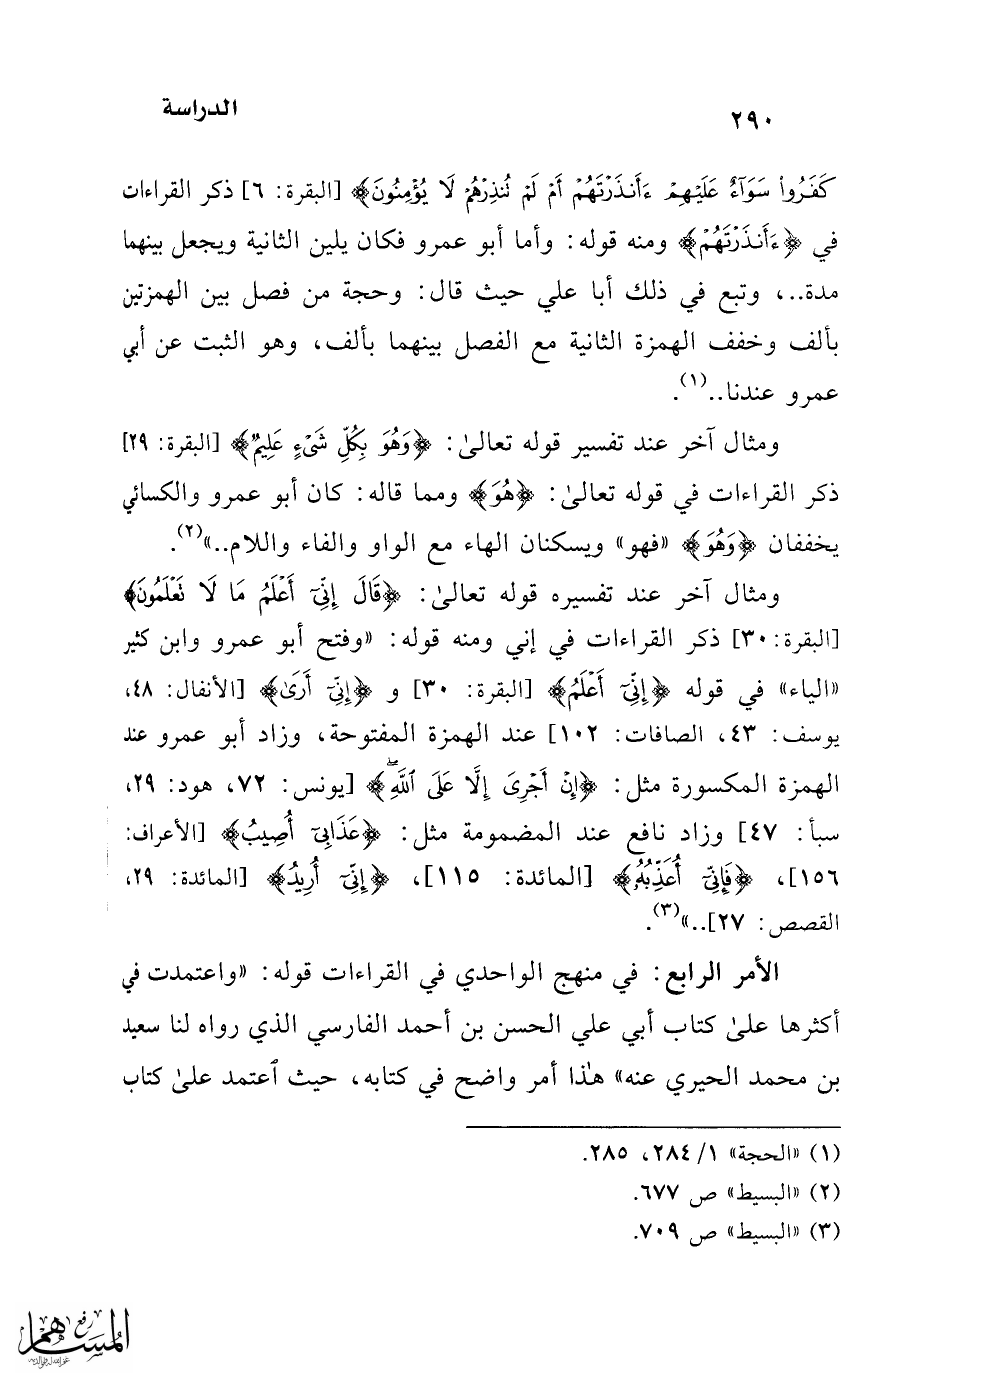 ٢٩٠
الدراسة
كَفَرُوا۟ سَوَآءٌ عَلَيْهِمْ ءَأَنذَرْتَهُمْ أَمْ لَمْ تُنذِرْهُمْ لَا يُؤْمِنُونَ﴾ [البقرة: ٦] ذكر القراءات
في ﴿ءَأَنذَرْتَهُمْ﴾ ومنه قوله: وأما أبو عمرو فكان يلين الثانية ويجعل بينهما
مدة..، وتبع في ذلك أبا علي حيث قال: وحجة من فصل بين الهمزتين
بألف وخفف الهمزة الثانية مع الفصل بينهما بألف، وهو الثبت عن أبي
عمرو عندنا..(١).
ومثال آخر عند تفسير قوله تعالىٰ: ﴿وَهُوَ بِكُلِّ شَىْءٍ عَلِيمٌ﴾ [البقرة: ٢٩]
ذكر القراءات في قوله تعالىٰ: ﴿هُوَ﴾ ومما قاله: كان أبو عمرو والكسائي
يخففان ﴿وَهُوَ﴾ «فهو» ويسكنان الهاء مع الواو والفاء واللام..»(٢).
ومثال آخر عند تفسيره قوله تعالىٰ: ﴿قَالَ إِنِّىٓ أَعْلَمُ مَا لَا تَعْلَمُونَ﴾
[البقرة: ٣٠] ذكر القراءات في إني ومنه قوله: «وفتح أبو عمرو وابن كثير
«الياء» في قوله ﴿إِنِّىٓ أَعْلَمُ﴾ [البقرة: ٣٠] و ﴿إِنِّىٓ أَرَىٰ﴾ [الأنفال: ٤٨،
يوسف: ٤٣، الصافات: ١٠٢] عند الهمزة المفتوحة، وزاد أبو عمرو عند
الهمزة المكسورة مثل: ﴿إِنْ أَجْرِىَ إِلَّا عَلَى ٱللَّهِۖ﴾ [يونس: ٧٢، هود: ٢٩،
سبأ: ٤٧] وزاد نافع عند المضمومة مثل: ﴿عَذَابِىٓ أُصِيبُ﴾ [الأعراف:
١٥٦]، ﴿فَإِنِّىٓ أُعَذِّبُهُۥ﴾ [المائدة: ١١٥]، ﴿إِنِّىٓ أُرِيدُ﴾ [المائدة: ٢٩،
القصص: ٢٧]..»(٣).
الأمر الرابع: في منهج الواحدي في القراءات قوله: «واعتمدت في
أكثرها علىٰ كتاب أبي علي الحسن بن أحمد الفارسي الذي رواه لنا سعيد
بن محمد الحيري عنه» هٰذا أمر واضح في كتابه، حيث ٱعتمد علىٰ كتاب
(١) «الحجة» ١/ ٢٨٤، ٢٨٥.
(٢) «البسيط» ص ٦٧٧.
(٣) «البسيط» ص ٧٠٩.
رفع
المساهم